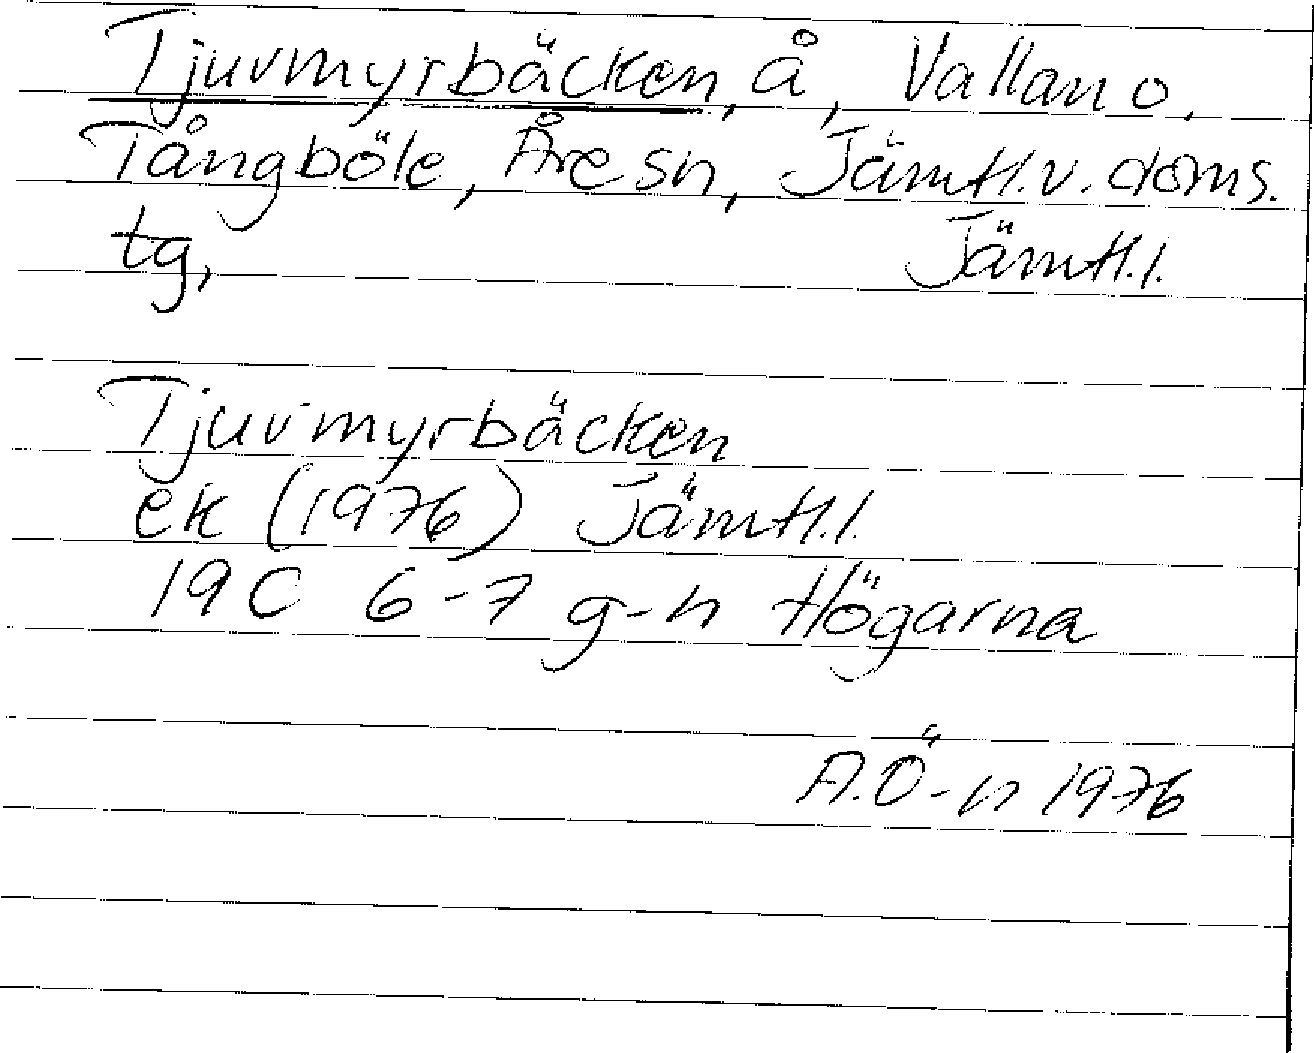 Tjuvmyrbäcken, å, Vallan o.
Tångböle, Åre sn, Jämtl.v. doms.
tg, Jämtl.l.
Tjuvmyrbäcken
ek (1976) Jämtl.l.
19C 6-7 g-h Högarna
A.Ö-n 1976